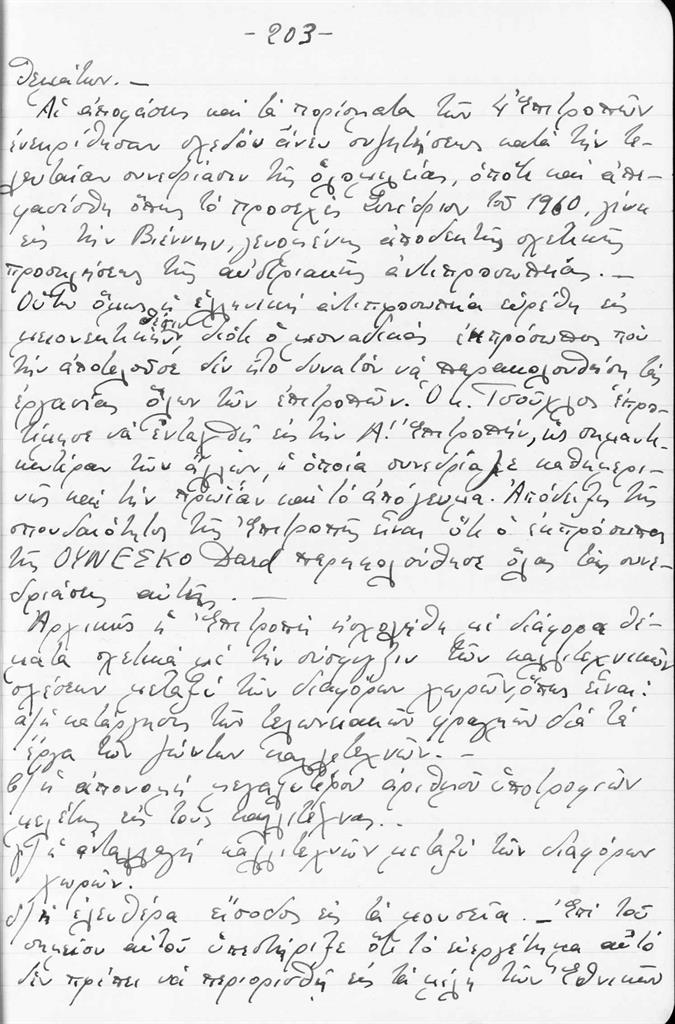 -203-
θεμάτων. —
Αἱ ἀποφάσεις καὶ τὰ πορίσματα τῶν 4 Ἐπιτροπῶν
ἐνεκρίθησαν σχεδὸν ἄνευ συζητήσεως κατὰ τὴν τε-
λευταίαν συνεδρίασιν τῆς ὁλομελείας, ὁπότε καὶ ἀπε-
φασίσθη ὅπως τὸ προσεχὲς Συνέδριον τοῦ 1960, γίνη
εἰς τὴν Βιέννην, γενομένης ἀποδεκτῆς σχετικῆς
προσκλήσεως τῆς αὐστριακῆς ἀντιπροσωπείας. —
Οὕτω ὅμως ἡ ἑλληνικὴ ἀντιπροσωπεία εὑρέθη εἰς
μειονεκτικὴν θέσιν διότι ὁ μοναδικὸς ἐκπρόσωπος ποὺ
τὴν ἀποτελοῦσε δὲν ἦτο δυνατὸν νὰ παρακολουθήση τὰς
ἐργασίας ὅλων τῶν ἐπιτροπῶν. Ὁ κ. Τσοῦχλος ἐπρο-
τίμησε νὰ ἐνταχθῆ εἰς τὴν Α! Ἐπιτροπήν, ὡς σημαντι-
κωτέραν τῶν ἄλλων, ἡ ὁποία συνεδρίαζε καθημερι-
νῶς καὶ τὴν πρωΐαν καὶ τὸ ἀπόγευμα. Ἀπόδειξις τῆς
σπουδαιότητος τῆς Ἐπιτροπῆς εἶναι ὅτι ὁ ἐκπρόσωπος
τῆς ΟΥΝΕΣΚΟ Dard παρηκολούθησε ὅλας τὰς συνε-
δριάσεις αὐτῆς. —
Ἀρχικῶς ἡ Ἐπιτροπὴ ἠσχολήθη μὲ διάφορα θέ-
ματα σχετικὰ μὲ τὴν σύσφιγξιν τῶν καλλιτεχνικῶν
σχέσεων μεταξὺ τῶν διαφόρων χωρῶν, ὅπως εἶναι:
α/ ἡ κατάργησις τῶν τελωνειακῶν φραγμῶν διὰ τὰ
ἔργα τῶν ζώντων καλλιτεχνῶν. —
β/ ἡ ἀπονομὴ μεγαλυτέρου ἀριθμοῦ ὑποτροφιῶν
μελέτης εἰς τοὺς καλλιτέχνας..
γ/ ἡ ἀνταλλαγὴ καλλιτεχνῶν μεταξὺ τῶν διαφόρων
χωρῶν.
δ/ ἡ ἐλευθέρα εἴσοδος εἰς τὰ μουσεῖα. — Ἐπὶ τοῦ
σημείου αὐτοῦ ὑπεστήριξε ὅτι τὸ εὐεργέτημα αὐτὸ
δὲν πρέπει νὰ περιορισθῆ εἰς τὰ μέλη τῶν Ἐθνικῶν